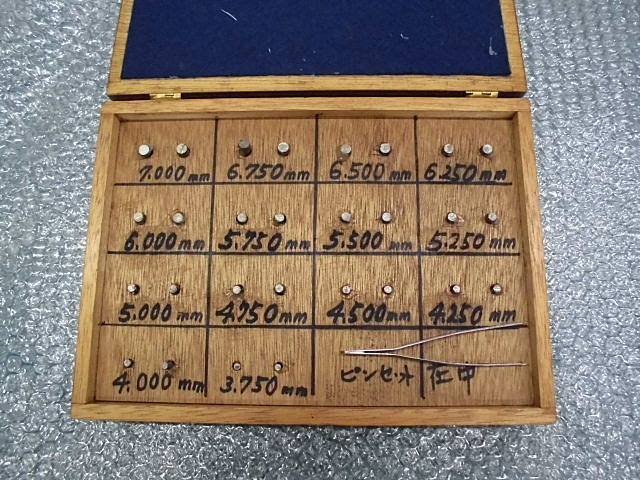 7.000 mm 6.750 mm 6.500 mm 6.250 mm
6.000 mm 5.750 mm 5.500 mm 5.250 mm
5.000 mm 4.750 mm 4.500 mm 4.250 mm
4.000 mm 3.750 mm ピンセット